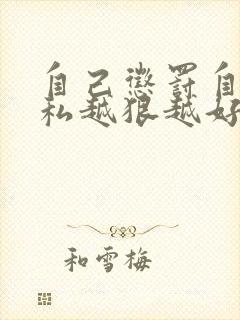 自己懲罰自
私越狠越好
和雪梅